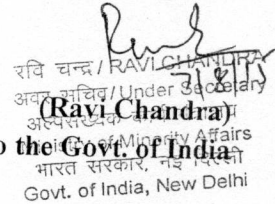 रवि चन्द्र / RAVI CHANDRA
अवर सचिव / Under Secretary
(Ravi Chandra)
अल्पसंख्यक कार्य मंत्रालय
Ministry of Minority Affairs
o the Govt. of India
भारत सरकार, नई दिल्ली
Govt. of India, New Delhi